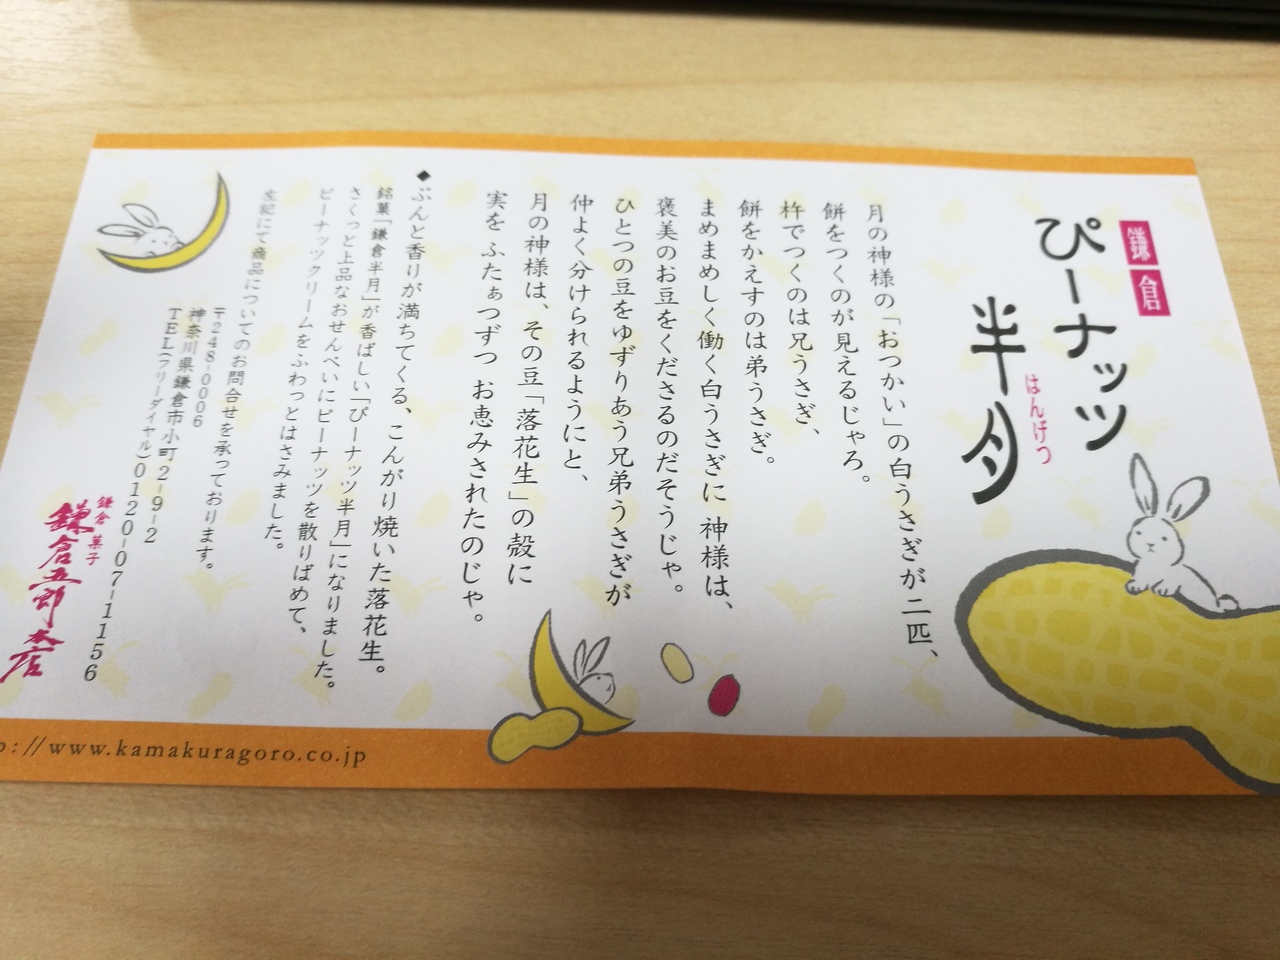 鎌倉
ぴーナッツ
半月
はんげつ
月の神様の「おつかい」の白うさぎが二匹、
餅をつくのが見えるじゃろ。
杵でつくのは兄うさぎ、
餅をかえすのは弟うさぎ。
まめまめしく働く白うさぎに 神様は、
褒美のお豆をくださるのだそうじゃ。
ひとつの豆をゆずりあう兄弟うさぎが
仲よく分けられるようにと、
月の神様は、その豆「落花生」の殻に
実を ふたぁつずつ お恵みされたのじゃ。
◆ぷんと香りが満ちてくる、こんがり焼いた落花生。
銘菓「鎌倉半月」が香ばしい「ぴーナッツ半月」になりました。
さくっと上品なおせんべいにピーナッツを散りばめて、
ピーナッツクリームをふわっとはさみました。
左記にて商品についてのお問合せを承っております。
〒248-0006
神奈川県鎌倉市小町2-9-2
TEL(フリーダイヤル)0120-07-1156
鎌倉 菓子
鎌倉五郎本店
p://www.kamakuragoro.co.jp